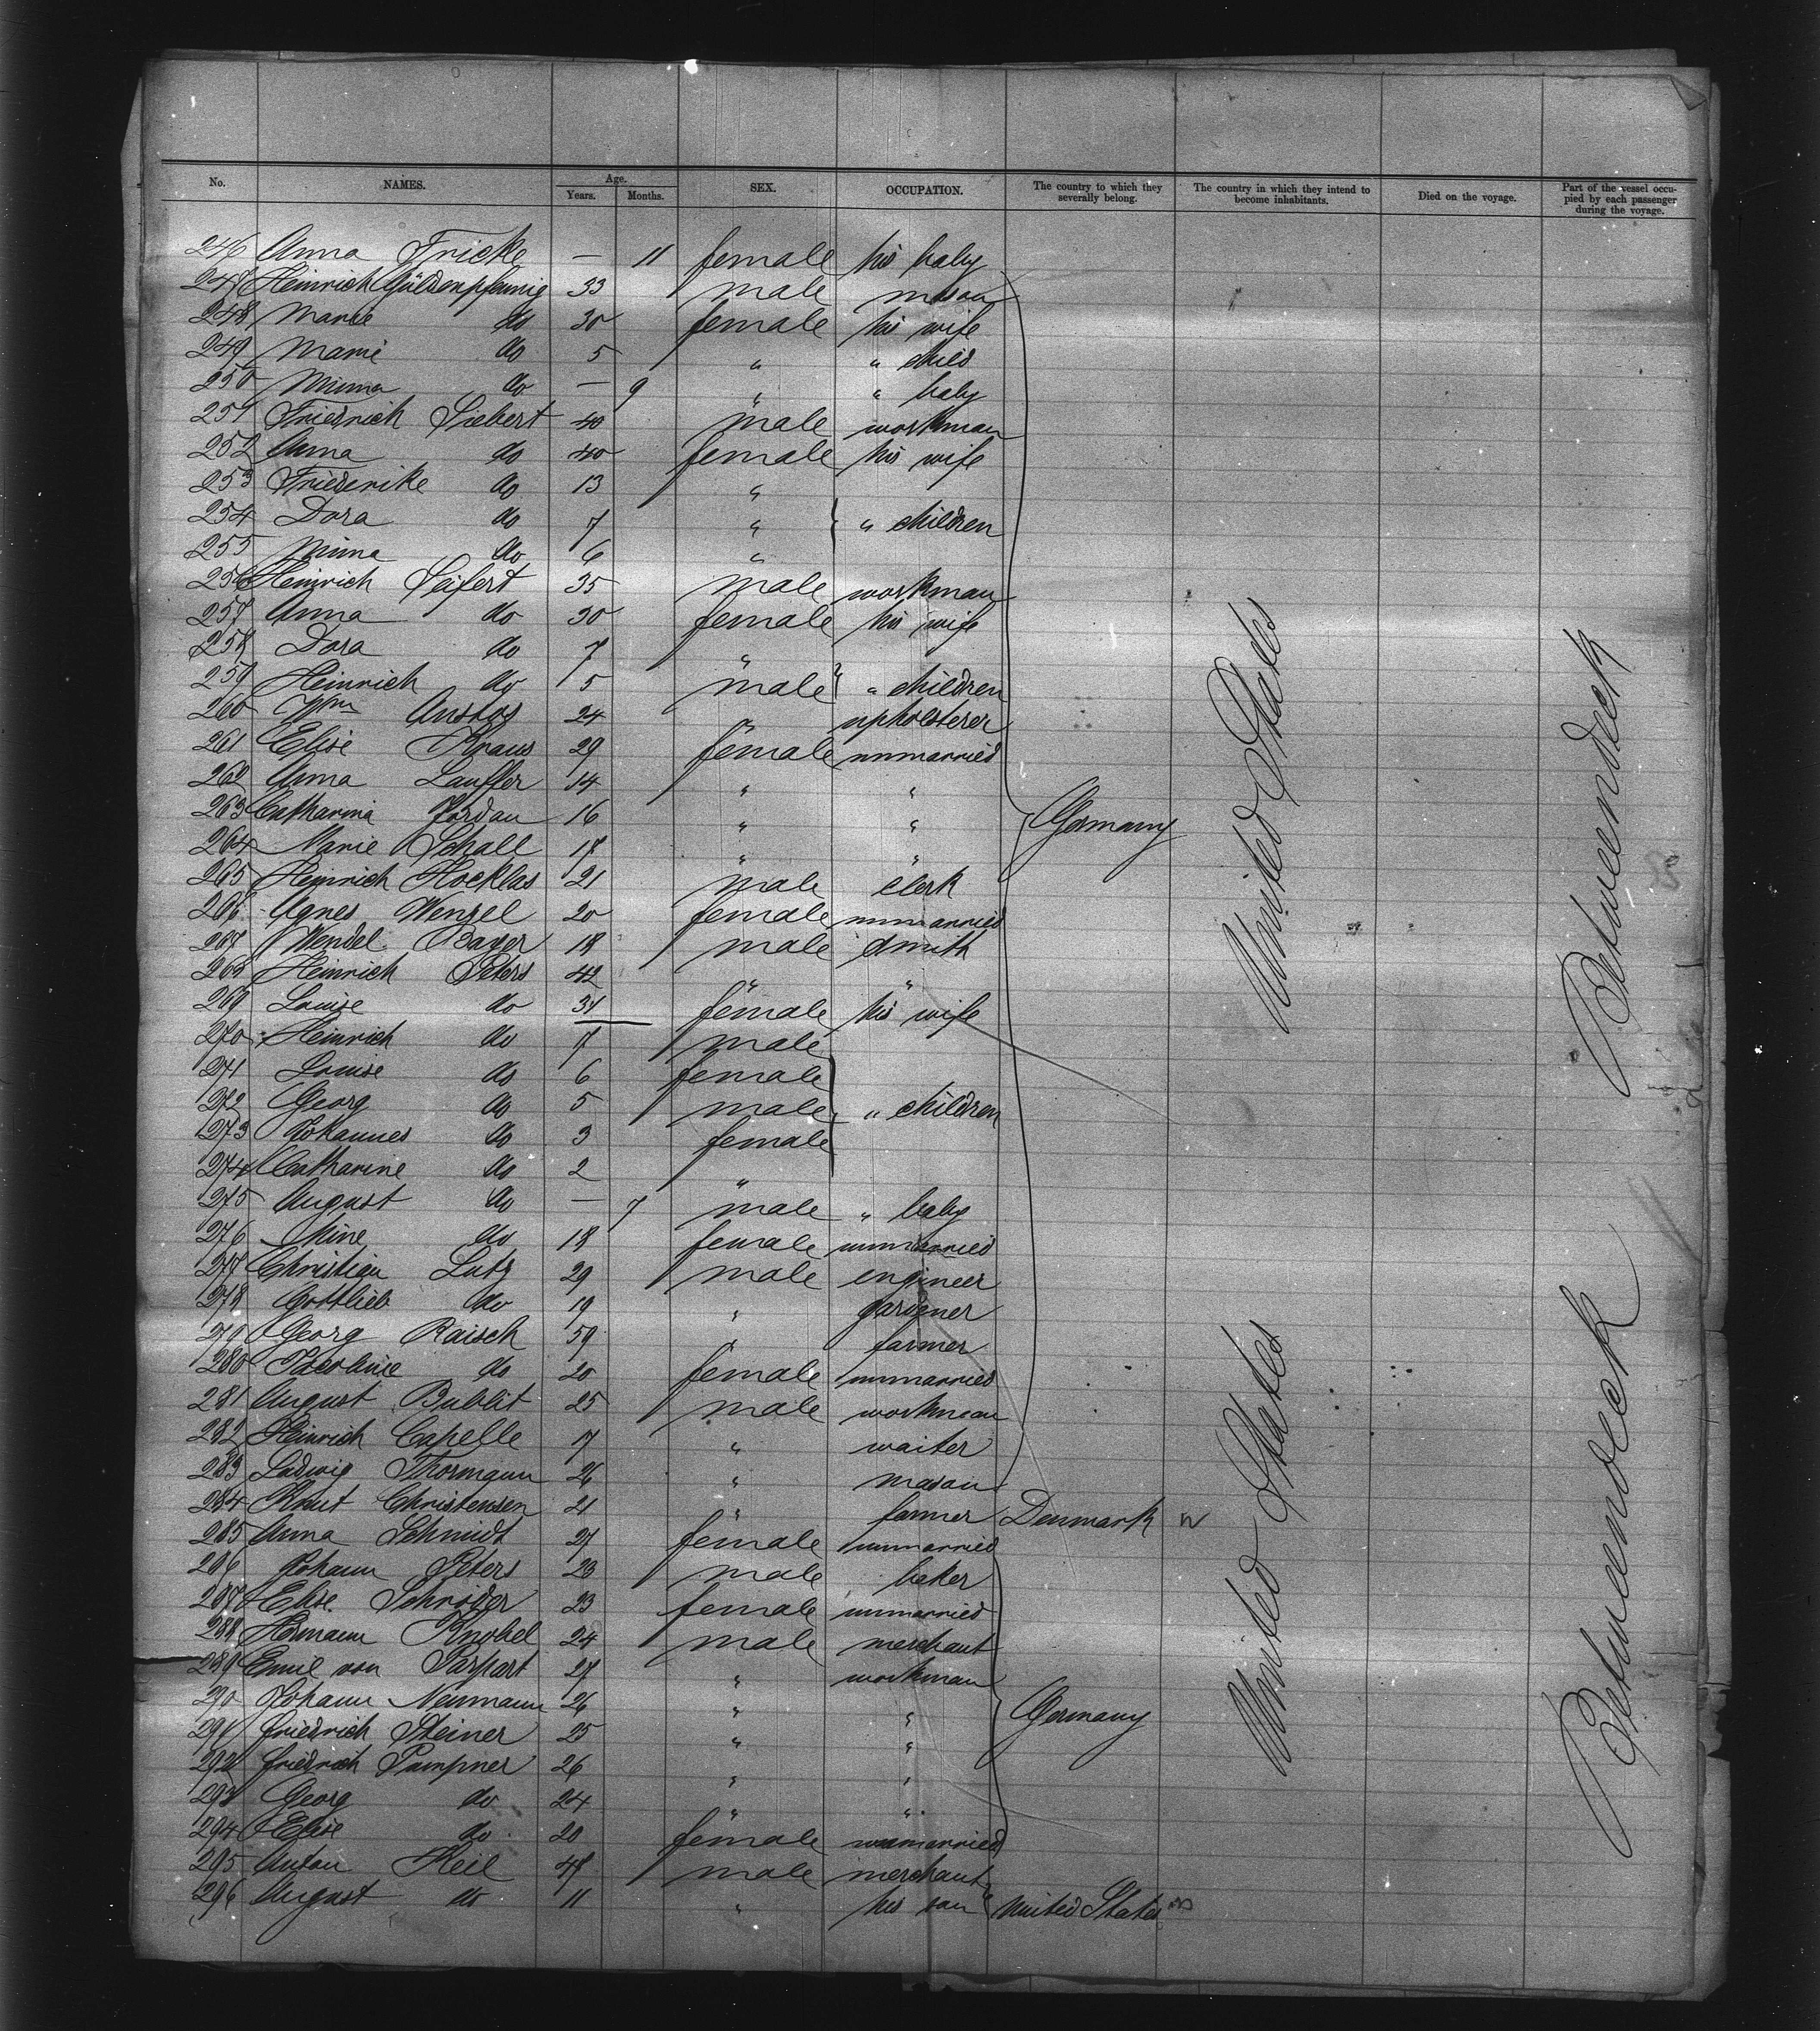 No. NAMES. Age. Years. Months. SEX. OCCUPATION. The country to which they severally belong. The country in which they intend to become inhabitants. Died on the voyage. Part of the vessel occupied by each passenger during the voyage.
246 Anna Fricke — 11 female his baby
247 Heinrich Güldenpfennig 33 male mason
248 Marie do 30 female his wife
249 Marie do 5 " " child
250 Minna do — 9 " " baby
251 Friedrich Siebert 40 male workman
252 Anna do 40 female his wife
253 Friederike do 13 "
254 Dora do 7 " " children
255 Minna do 6 "
256 Heinrich Seifert 35 male workman
257 Anna do 30 female his wife
258 Dora do 7 "
259 Heinrich do 5 male " children
260 Wm 24 " upholsterer
261 Elise Kraus 29 female unmarried
262 Anna Lauffer 14 " "
263 Catharina Jordan 16 " " Germany
264 Marie Schall 17 " "
265 Heinrich Hocklas 21 male clerk
266 Agnes Wenzel 20 female unmarried
267 Wendel Bayer 18 male smith
268 Heinrich Peters 42 " "
269 Louise do 31 female his wife
270 Heinrich do 7 male
271 Louise do 6 female
272 Georg do 5 male " children
273 Johannes do 3 female
274 Catharine do 2 "
275 August do — 7 male " baby
276 Mine do 18 female unmarried
277 Christian Lutz 29 male engineer
278 Gottlieb do 19 " gardener
279 Georg Raisch 59 " farmer
280 do 20 female unmarried
281 August Bublit 25 male workman
282 Heinrich Capelle 17 " waiter
283 Ludwig Thormann 26 " mason
284 Knut Christensen 21 " farmer Denmark
285 Anna Schmidt 27 female unmarried
286 Johann Peters 23 male baker
287 Elise Schröder 23 female unmarried
288 Hermann Knobel 24 male merchant
289 Emil von Parpart 27 " workman
290 Johann Neumann 26 " " Germany
291 Friedrich Steiner 25 " "
292 Friedrich Pampner 26 " "
293 Georg do 24 " "
294 Elise do 20 female unmarried
295 Anton Heil 47 male merchant
296 August do 11 " his son United States
United States
United States
Betweendeck
Betweendeck